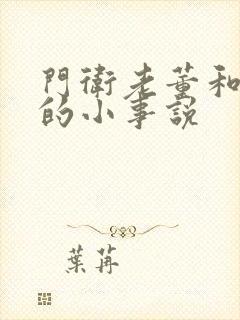 門衛老董和
的小事説
葉苒